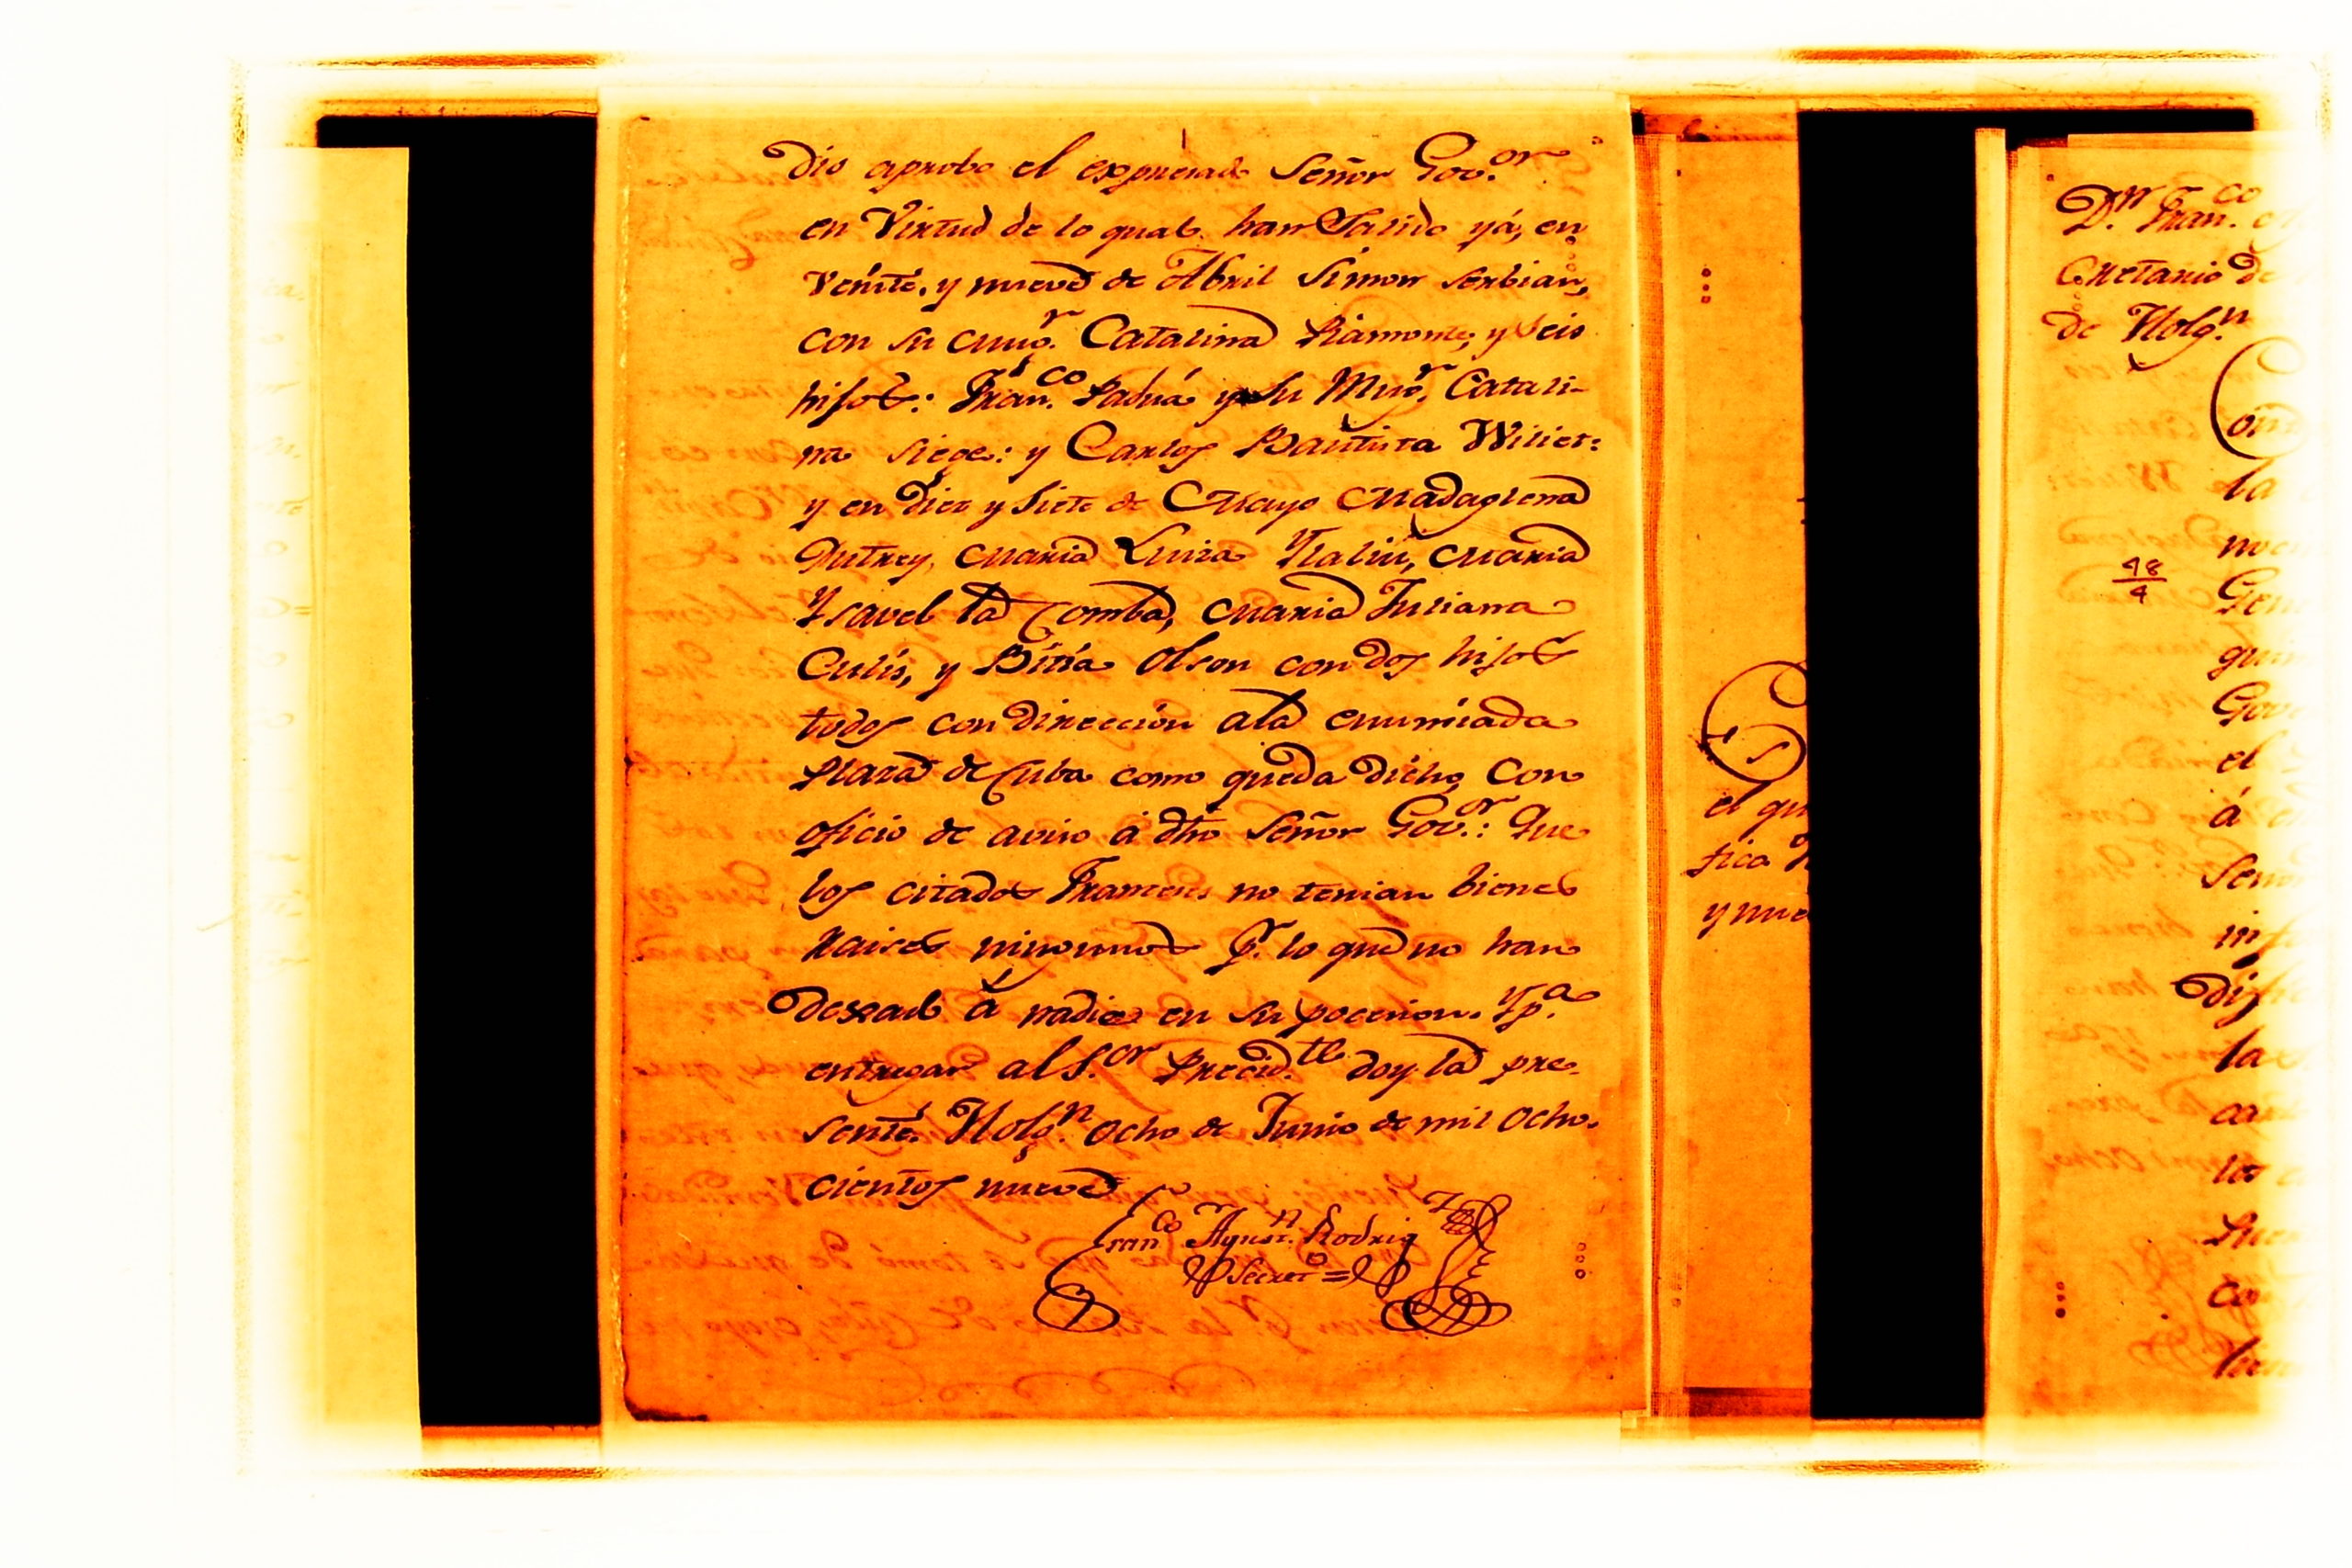 dio aprobo el expresado Señor Gov.or
en Virtud de lo qual han Salido yá, en
veinte, y nueve de Abril Simon Serbian,
con su mug.r Catalina Piamonte, y seis
hijos: Fran.co Padua y su Mug.r Catali-
na Siege: y Carlos Bautista Wiliet:
y en diez y Siete de Mayo Madaglena
Dutrey, Maria Luisa Naliu, Maria
Ysavel la Comba, Maria Juliana
Culis, y Bitia Olson con dos hijos
todos con dirección ala enunciada
Plaza de Cuba como queda dicho, con
oficio de aviso á dho Señor Gov.or: Que
los citados Franceses no tenian bienes
Raises ningunos p.r lo que no han
dexado á nadie en su pocecion. Y p.a
entregar al S.or Precid.te doy la pre-
sente. Holg.n ocho de Junio de mil ocho-
cientos nueve
Fran.co Agust.n Rodrig.z
Secret.o
el qu
tica
y nue
D.n Fran.co
Cretario de
de Holg.n
la
48
4
Gen
Gov
el
á
Señ
la